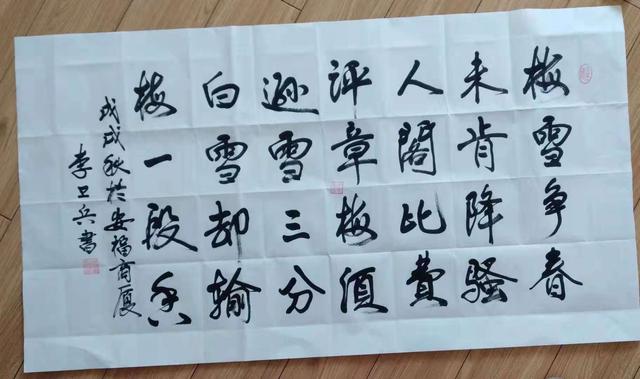 梅雪争春
未肯降骚
人閣比費
评章梅須
遜雪三分
白雪却输
梅一段香
戊戌秋於安福商厦
李卫兵書